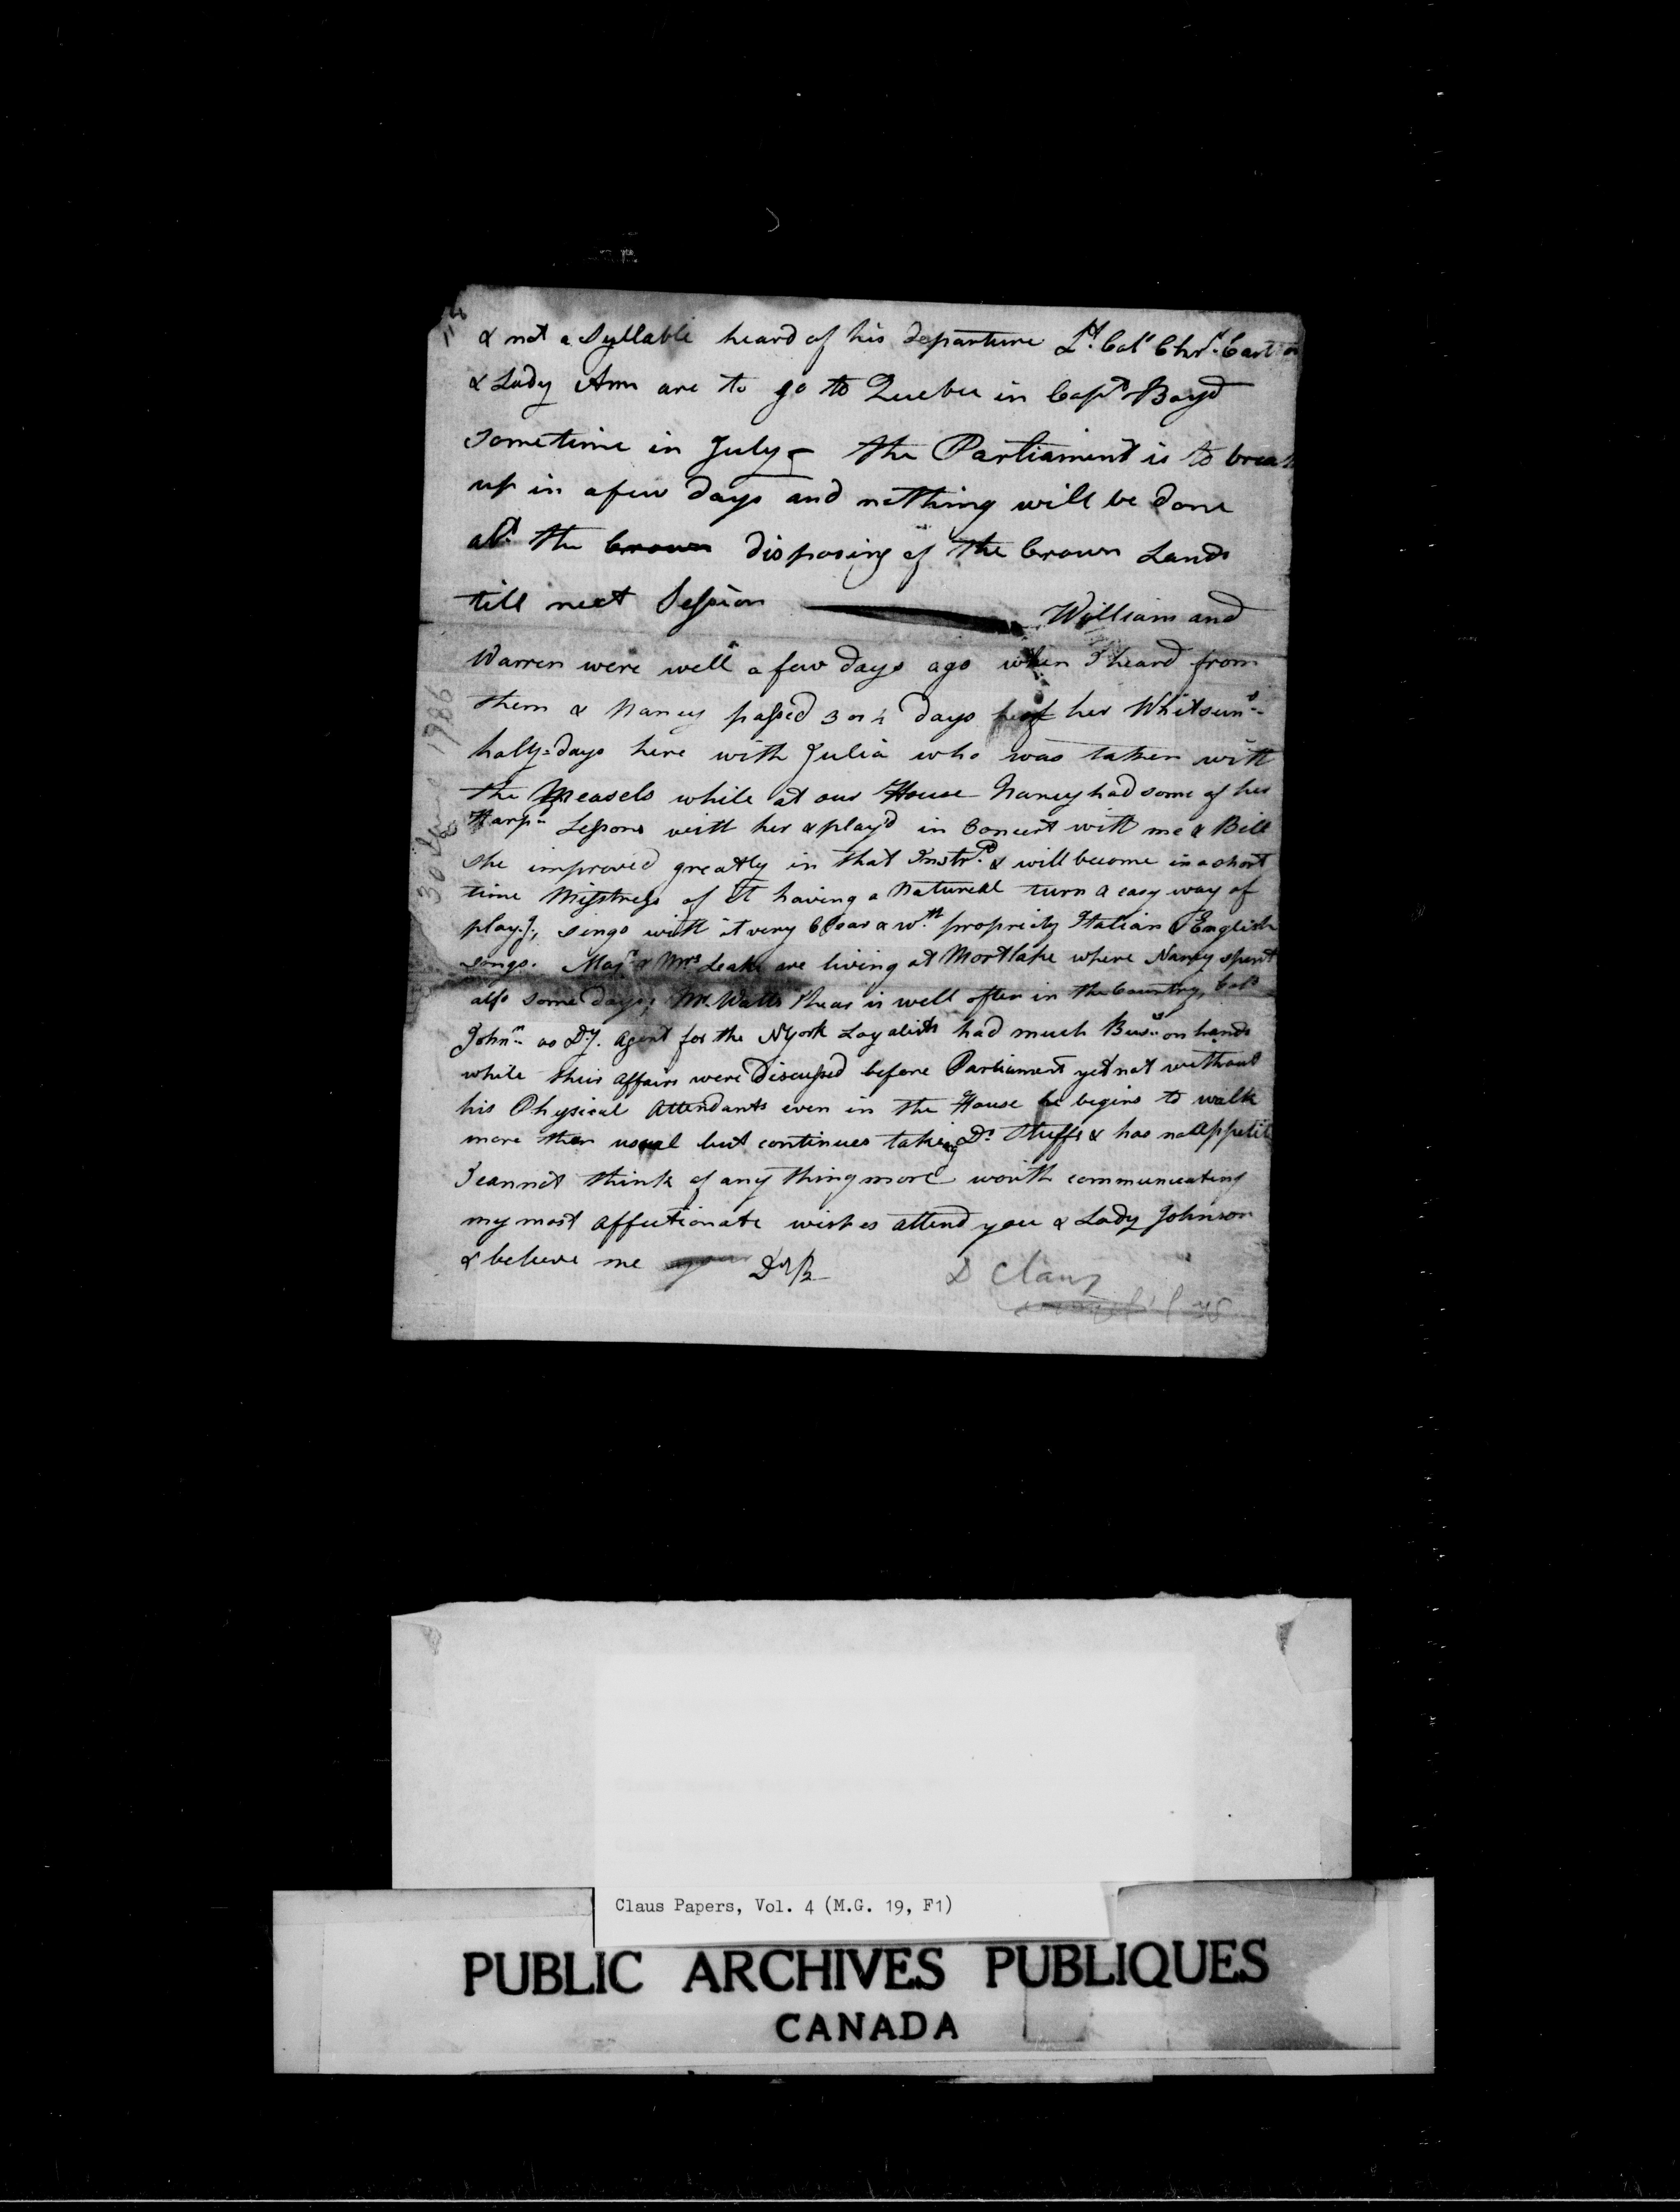 & not a Syllable heard of his departure Lt. Colo Chr. Carleton
& Lady Ann are to go to Quebec in Capt Boyd
sometime in July – the Parliament is to break
up in a few days and nothing will be done
abt. the Crown disposing of the Crown Lands
till next Session — William and
Warren were well a few days ago when I heard from
them & Nancy passed 3 or 4 days of her Whitsun
holy=days here with Julia who was taken with
the Measels while at our House Nancy had some of her
Harps. Lessons with her & play'd in Concert with me & Bill
she improved greatly in that Instrt. & will become in a short
time Misstress of it having a Natureal turn a easy way of
playg., sings with it very Clear & wth. propriety Italian & English
songs. Majr. & Mrs Leake are living at Mortlake where Nancy spent
also some days; Mr. Watts I hear is well often in the Country, Colo
Johnn. as Dy. Agent for the NYork Loyalists had much Buss. on hands
while their affairs were discussed before Parliament yet not without
his Physical Attendants even in the House he begins to walk
more than usual but continues taking Drs Stuffs & has no Appetite
I cannot think of any thing more worth communicating
my most affectionate wishes attend you & Lady Johnson
& believe me Dr Sr
D Claus
30 June 1786
Claus Papers, Vol. 4 (M.G. 19, F1)
PUBLIC ARCHIVES PUBLIQUES
CANADA